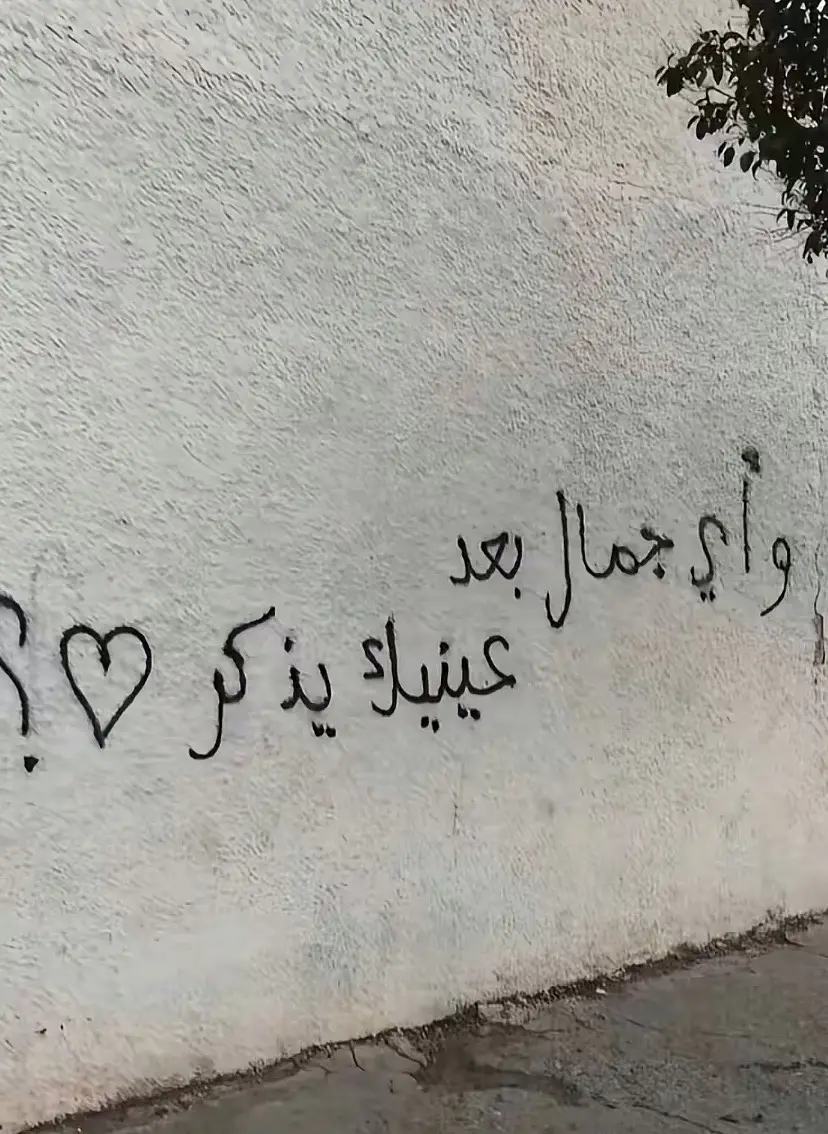 وأي جمال بعد
عينيك يذكر ♡؟